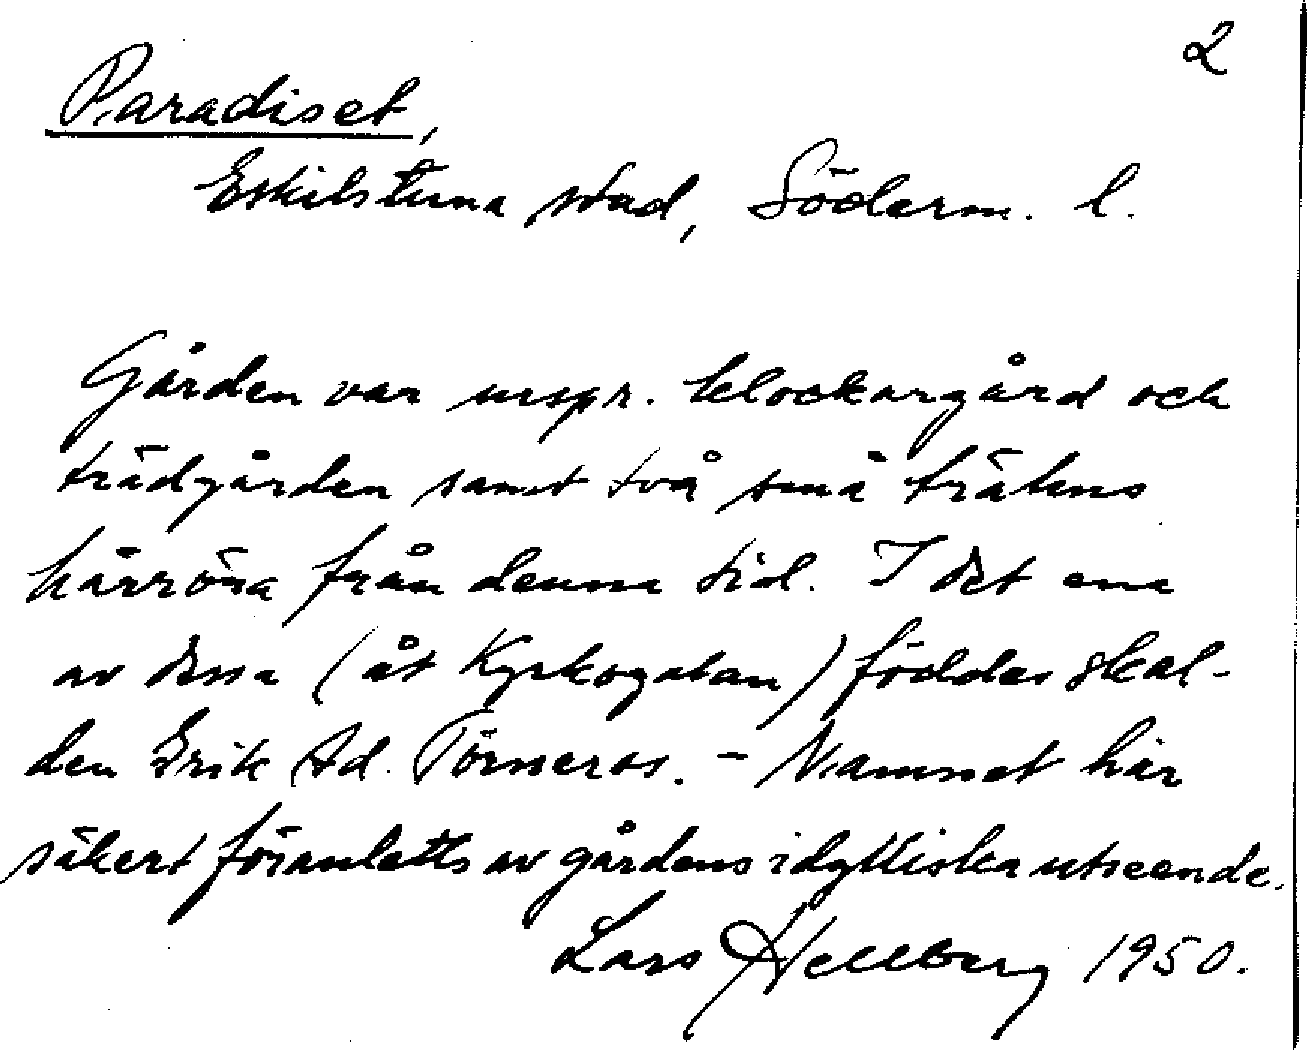 2
Paradiset,
Eskilstuna stad, Söderm. l.
Gården var urspr. klockargård och
trädgården samt två små trähus
härröra från denna tid. I det ena
av dessa (åt Kyrkogatan) föddes skal-
den Erik Ad. Törneros. - Namnet har
säkert föranletts av gårdens idylliska utseende.
Lars Hellberg 1950.